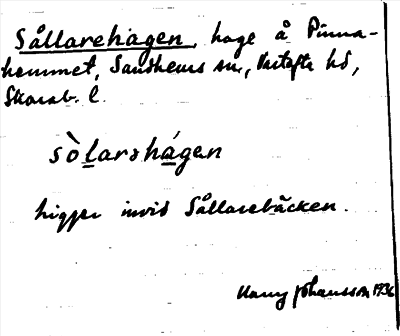 Sållarehagen, hage å Pinna-
hemmet, Sandhems sn, Vartofta hd,
Skarab. l.
sòlarshágen
ligger invid Sållarebäcken.
Harry Johansson 1936